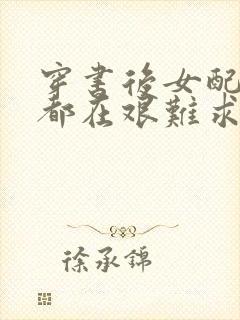 穿書後女配
都在艱難求
徐承錦